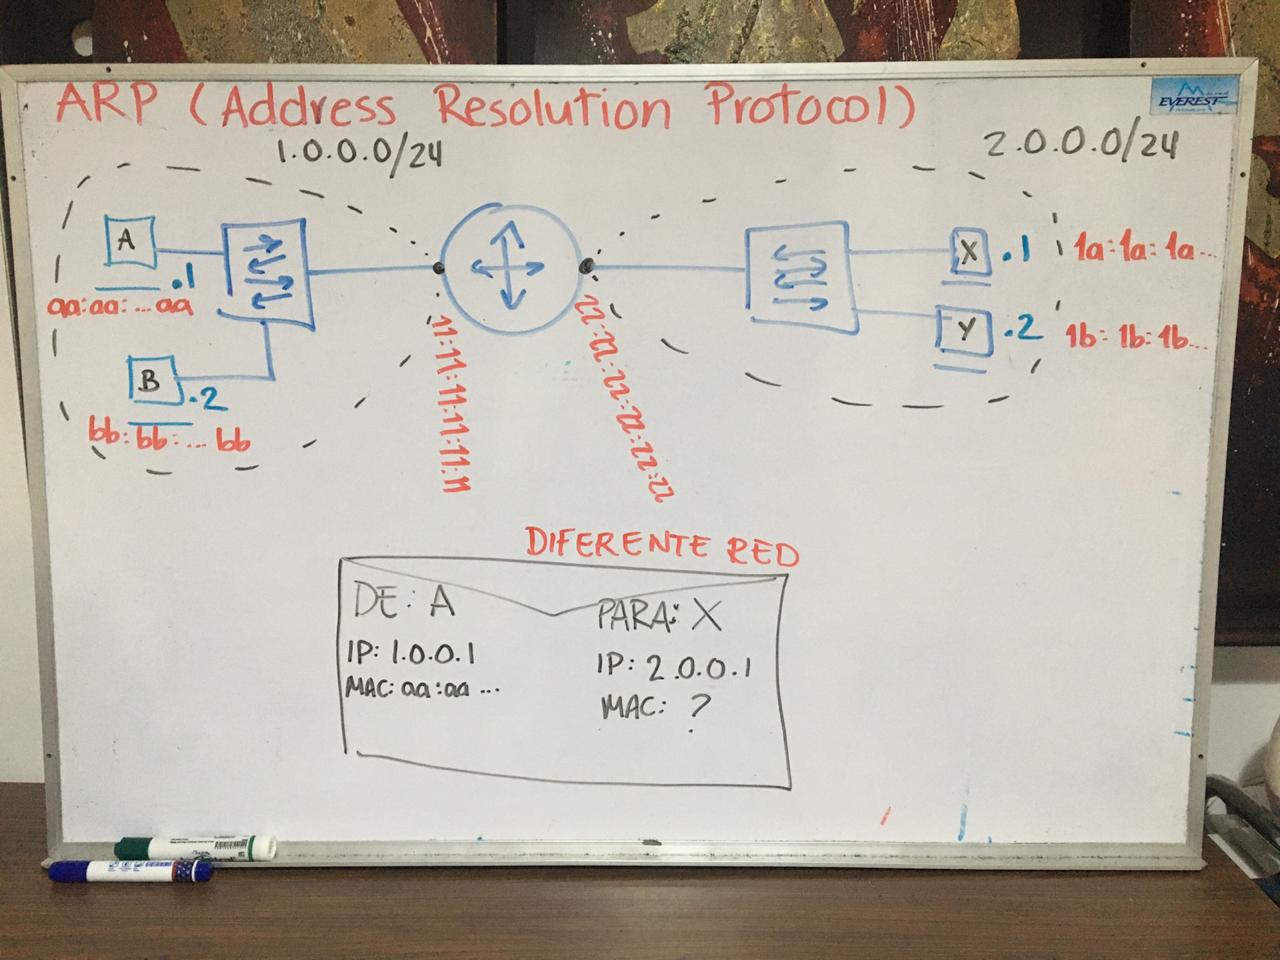 ARP (Address Resolution Protocol)
EVEREST
1.0.0.0/24
2.0.0.0/24
A
.1
aa:aa:...aa
B
.2
bb:bb:...bb
11:11:11:11:11:11
22:22:22:22:22:22
X
.1
1a:1a:1a...
Y
.2
1b:1b:1b...
DIFERENTE RED
DE: A
IP: 1.0.0.1
MAC: aa:aa...
PARA: X
IP: 2.0.0.1
MAC: ?